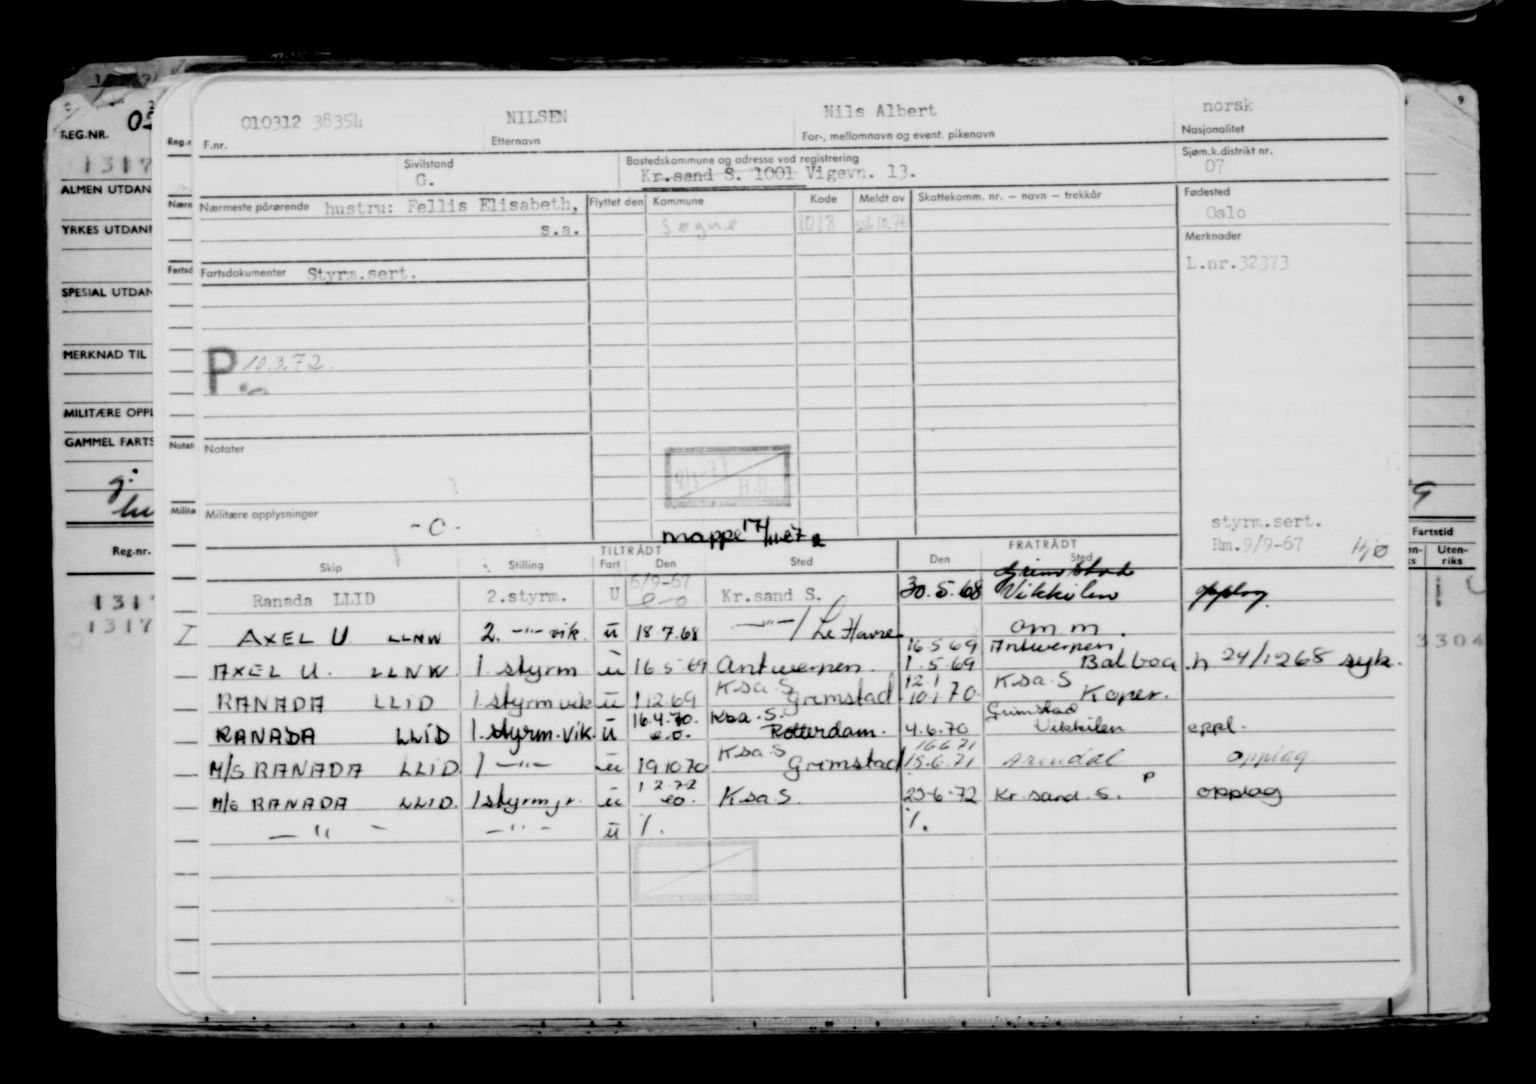 REG.NR.
1317
ALMEN UTDAN
YRKES UTDAN
SPESIAL UTDAN
MERKNAD TIL
MILITÆRE OPPL
GAMMEL FARTS
Reg.nr.
1317
1317
Nærn
Fartsd
Notat
Milita
010312 38354 NILSEN Nils Albert norsk
F.nr. Etternavn For-, mellomnavn og event. pikenavn Nasjonalitet
Sivilstand Bostedskommune og adresse ved registrering Sjøm.k.distrikt nr.
G. Kr.sand S. 1001 Vigevn. 13. 07
Nærmeste pårørende hustru: Fellis Elisabeth, Flyttet den Kommune Kode Meldt av Skattekomm. nr. – navn – trekkår Fødested
s.a. Søgne 1018 Oslo
Merknader
Fartsdokumenter Styrm.sert. L.nr.32373
P 10.3.72.
Notater
8/3-77
H.D.
Militære opplysninger -0- styrm.sert.
mappe Rm.9/9-67
TILTRÅDT FRATRÅDT
Skip Stilling Fart Den Sted Den Sted
6/9-67 Grimstad
Ranada LLID 2.styrm. U e-o Kr.sand S. 30.5.68 Vikkilen opplag.
I AXEL U LLNW 2. -"- vik ü 18.7.68 -"- / Le Havre om.m.
16.5.69 Antwerpen
AXEL U. LLNW. 1. styrm ü 16.5.69 Antwerpen. 1.5.69 Balboa h 24/1268 syk.
K.sa.S 12.1 K.sa.S
RANADA LLID 1.styrm vik ü 1.12.69 Grimstad 10.1.70 Koper.
16.4.70. Ksa.S. Grimstad
RANADA LLID 1.styrm.vik. ü e.o. Rotterdam. 4.6.70 Vikkilen oppl.
K.sa.S 16.6.71
M/S RANADA LLID 1 -"- ü 19.10.70 Grimstad 15.6.71 Arendal opplag
1.2.72 P
M/S RANADA LLID. 1styrm,r. ü eo. K.sa.S. 25-6-72 Kr.sand.S. opplag
-"- -"- ü %. %.
9
Fartstid
Uten-
riks
3304